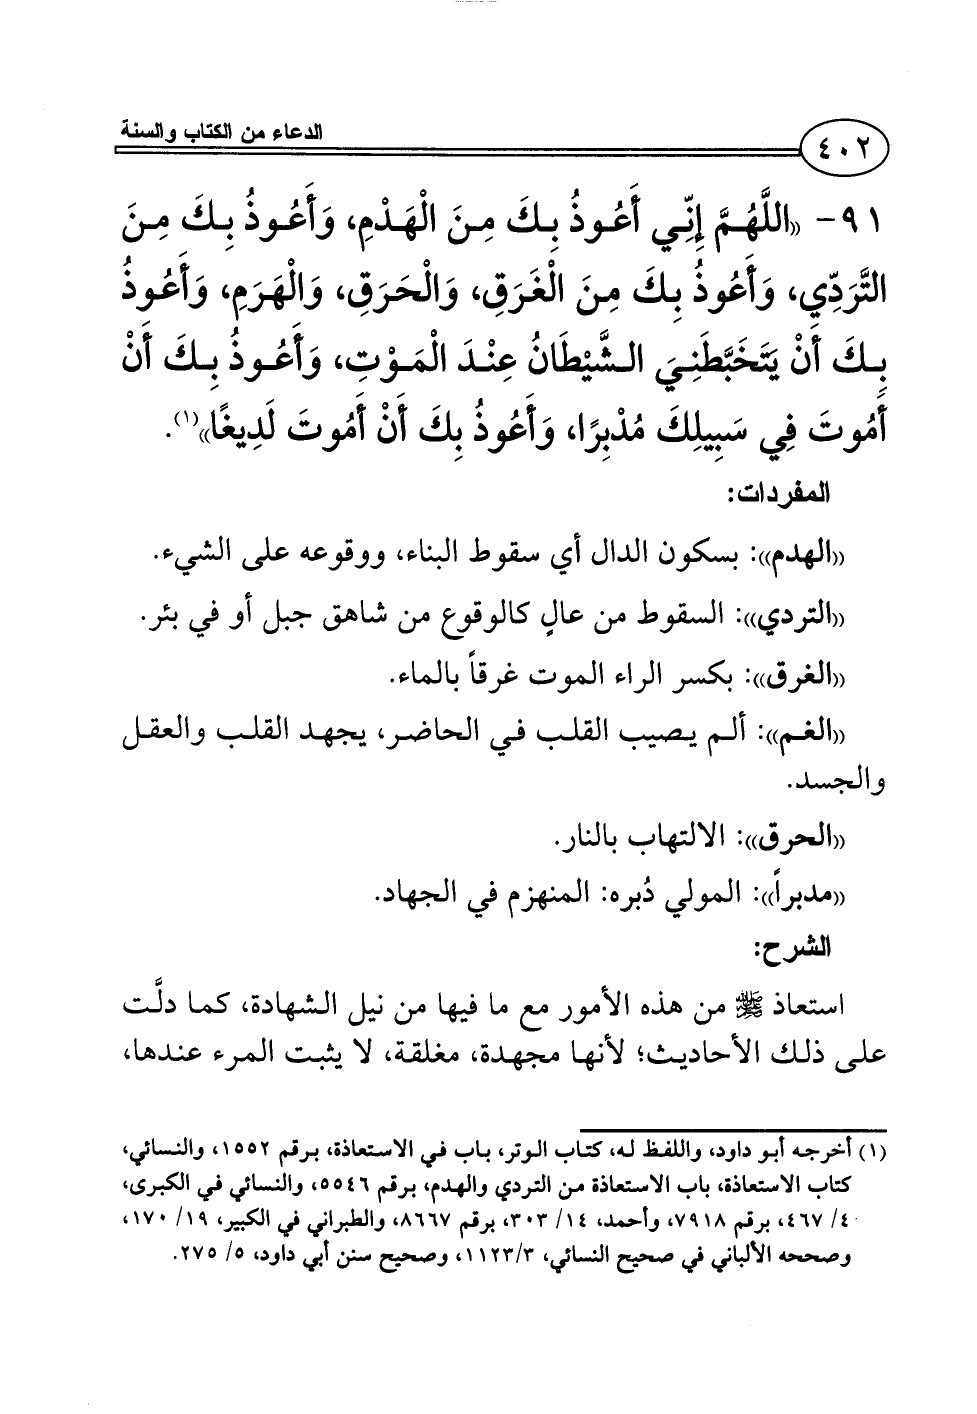 الدعاء من الكتاب والسنة
٤٠٢
٩١- «اللَّهُمَّ إِنِّي أَعُوذُ بِكَ مِنَ الْهَدْمِ، وَأَعُوذُ بِكَ مِنَ
التَّرَدِّي، وَأَعُوذُ بِكَ مِنَ الْغَرَقِ، وَالْحَرَقِ، وَالْهَرَمِ، وَأَعُوذُ
بِكَ أَنْ يَتَخَبَّطَنِيَ الشَّيْطَانُ عِنْدَ الْمَوْتِ، وَأَعُوذُ بِكَ أَنْ
أَمُوتَ فِي سَبِيلِكَ مُدْبِرًا، وَأَعُوذُ بِكَ أَنْ أَمُوتَ لَدِيغًا»(١).
المفردات:
«الهدم»: بسكون الدال أي سقوط البناء، ووقوعه على الشيء.
«التردي»: السقوط من عالٍ كالوقوع من شاهق جبل أو في بئر.
«الغرق»: بكسر الراء الموت غرقاً بالماء.
«الغم»: ألم يصيب القلب في الحاضر، يجهد القلب والعقل
والجسد.
«الحرق»: الالتهاب بالنار.
«مدبراً»: المولي دُبره: المنهزم في الجهاد.
الشرح:
استعاذ ﷺ من هذه الأمور مع ما فيها من نيل الشهادة، كما دلَّت
على ذلك الأحاديث؛ لأنها مجهدة، مغلقة، لا يثبت المرء عندها،
(١) أخرجه أبو داود، واللفظ له، كتاب الوتر، باب في الاستعاذة، برقم ١٥٥٢، والنسائي،
كتاب الاستعاذة، باب الاستعاذة من التردي والهدم، برقم ٥٥٤٦، والنسائي في الكبرى،
٤/ ٤٦٧، برقم ٧٩١٨، وأحمد، ١٤/ ٣٠٣، برقم ٨٦٦٧، والطبراني في الكبير، ١٩/ ١٧٠،
وصححه الألباني في صحيح النسائي، ٣/ ١١٢٣، وصحيح سنن أبي داود، ٥/ ٢٧٥.